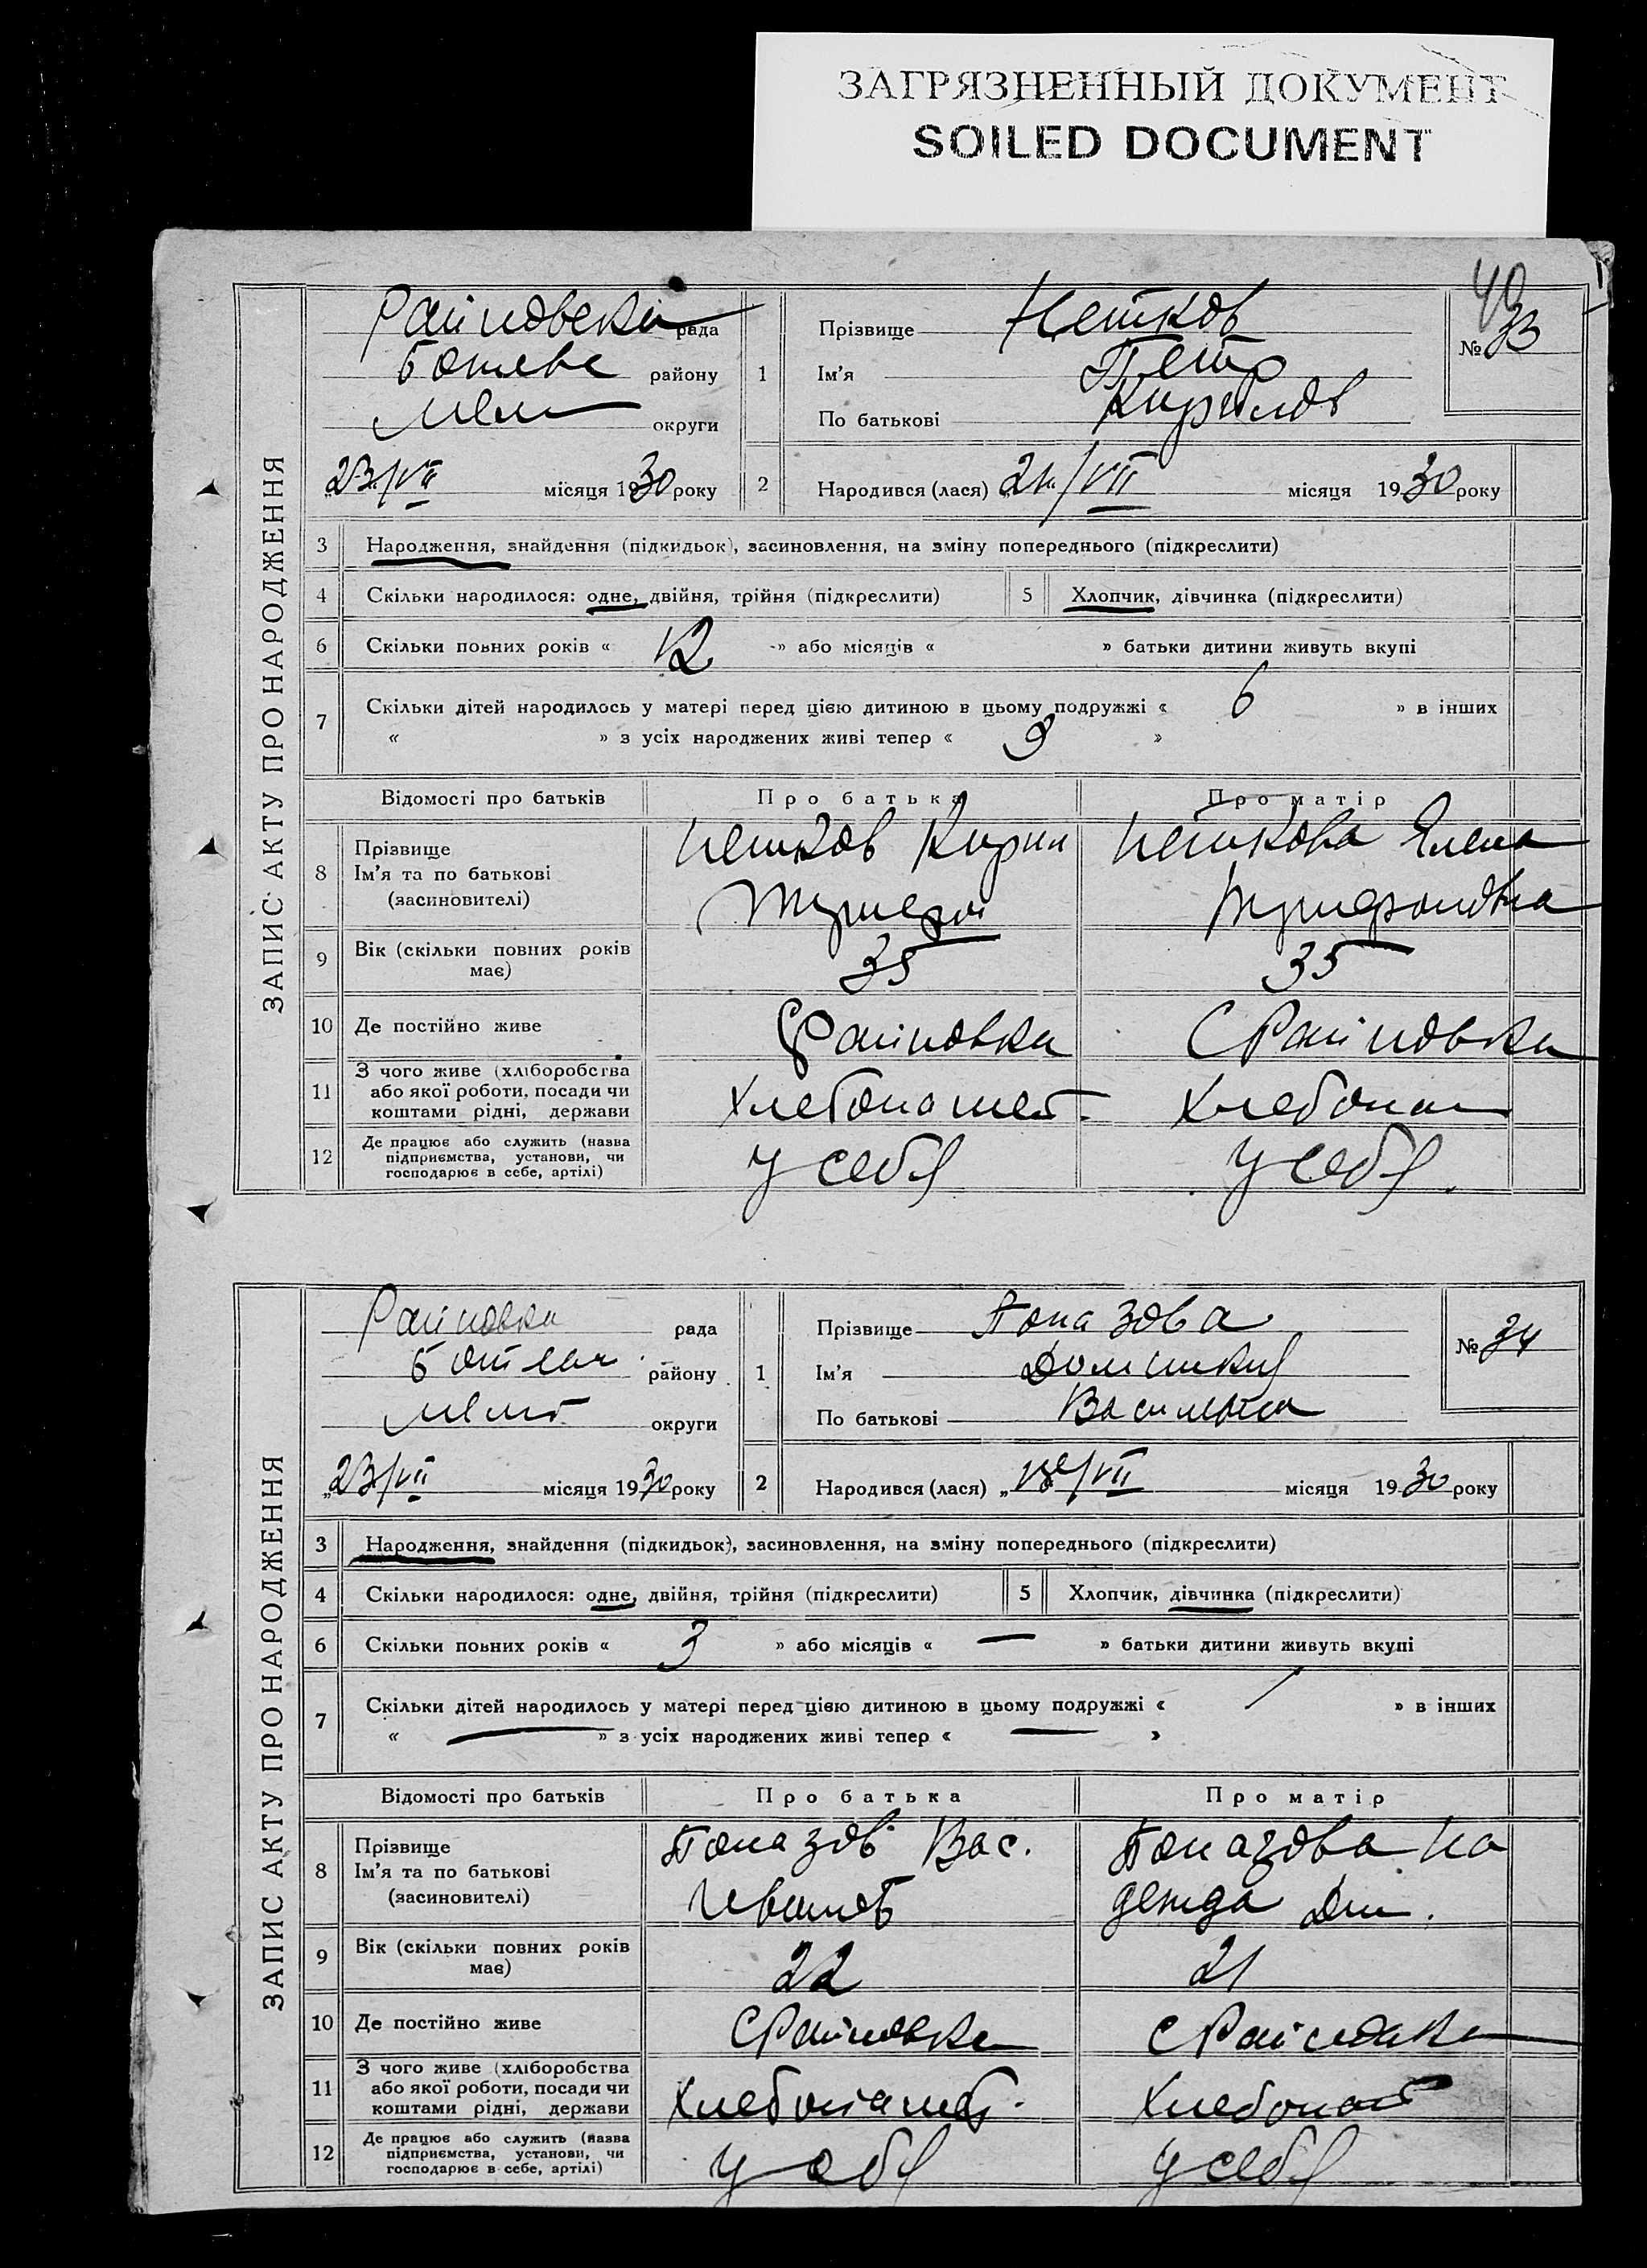 ЗАГРЯЗНЕННЫЙ ДОКУМЕНТ
SOILED DOCUMENT
40
ЗАПИС АКТУ ПРО НАРОДЖЕННЯ
Райновска рада
Ботеве району
Мел округи
23/VII місяця 1930 року
1
Прізвище Петков
Ім'я Петр
По батькові Кирилов
№ 33
2 Народився (лася) 21/VII місяця 1930 року
3 Народження, знайдення (підкидьок), засиновлення, на зміну попереднього (підкреслити)
4 Скільки народилося: одне, двійня, трійня (підкреслити) 5 Хлопчик, дівчинка (підкреслити)
6 Скільки повних років « 12 » або місяців « » батьки дитини живуть вкупі
7 Скільки дітей народилось у матері перед цією дитиною в цьому подружжі « 6 » в інших
« » з усіх народжених живі тепер « »
Відомості про батьків Про батька Про матір
8 Прізвище
Ім'я та по батькові
(засиновителі)
Петков Кирил
Петкова Елена
9 Вік (скільки повних років
має)
35 35
10 Де постійно живе Райновка С Райновка
11 З чого живе (хліборобства
або якої роботи, посади чи
коштами рідні, держави
Хлебопашет. Хлебопаш
12 Де працює або служить (назва
підприємства, установи, чи
господарює в себе, артілі)
у себя у себя
ЗАПИС АКТУ ПРО НАРОДЖЕННЯ
Райновка рада
Ботеве району
Мелит округи
„23/VII місяця 1930 року
1
Прізвище Попазова
Ім'я Домникия
По батькові Васильева
№ 34
2 Народився (лася) „ 18/VII місяця 1930 року
3 Народження, знайдення (підкидьок), засиновлення, на зміну попереднього (підкреслити)
4 Скільки народилося: одне, двійня, трійня (підкреслити) 5 Хлопчик, дівчинка (підкреслити)
6 Скільки повних років « 3 » або місяців « — » батьки дитини живуть вкупі
7 Скільки дітей народилось у матері перед цією дитиною в цьому подружжі « / » в інших
« — » з усіх народжених живі тепер « — »
Відомості про батьків Про батька Про матір
8 Прізвище
Ім'я та по батькові
(засиновителі)
Попазов Вас.
Иванов
Попазова На
дежда Дм.
9 Вік (скільки повних років
має)
22 21
10 Де постійно живе С Райновка С Райновка
11 З чого живе (хліборобства
або якої роботи, посади чи
коштами рідні, держави
Хлебопашет. Хлебопаш
12 Де працює або служить (назва
підприємства, установи, чи
господарює в себе, артілі)
у себя у себя